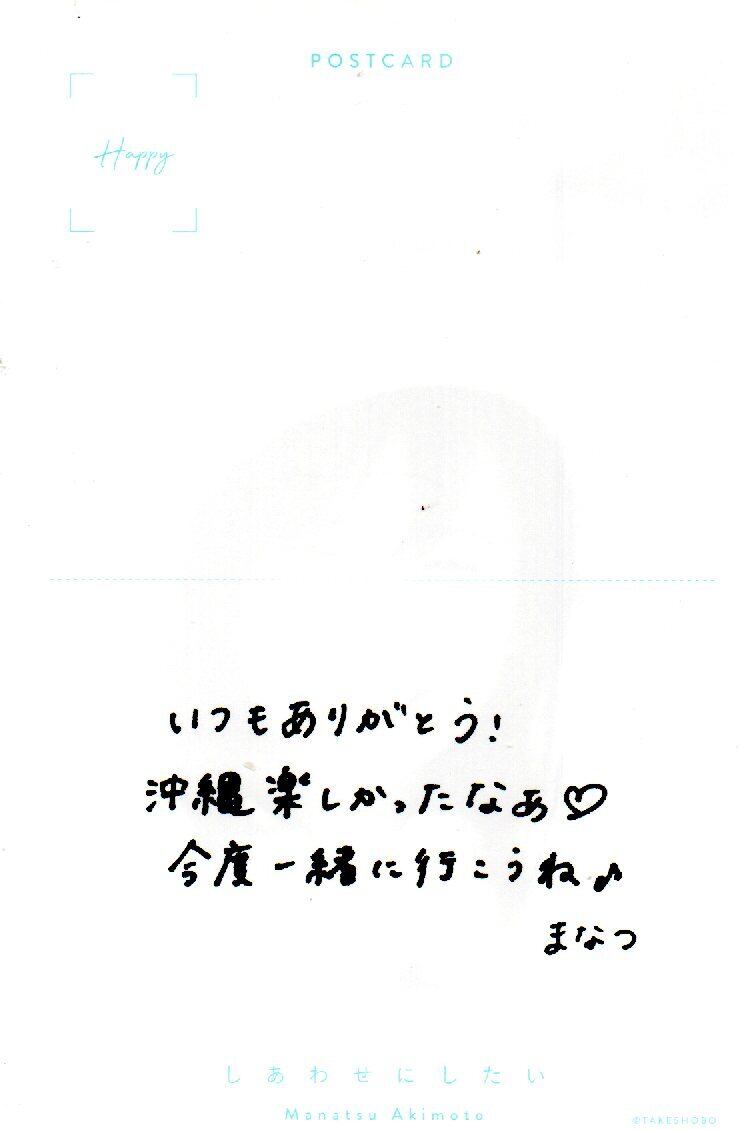 POSTCARD
Happy
いつもありがとう!
沖縄楽しかったなぁ♡
今度一緒に行こうね♪
まなつ
しあわせにしたい
Manatsu Akimoto
©TAKESHOBO